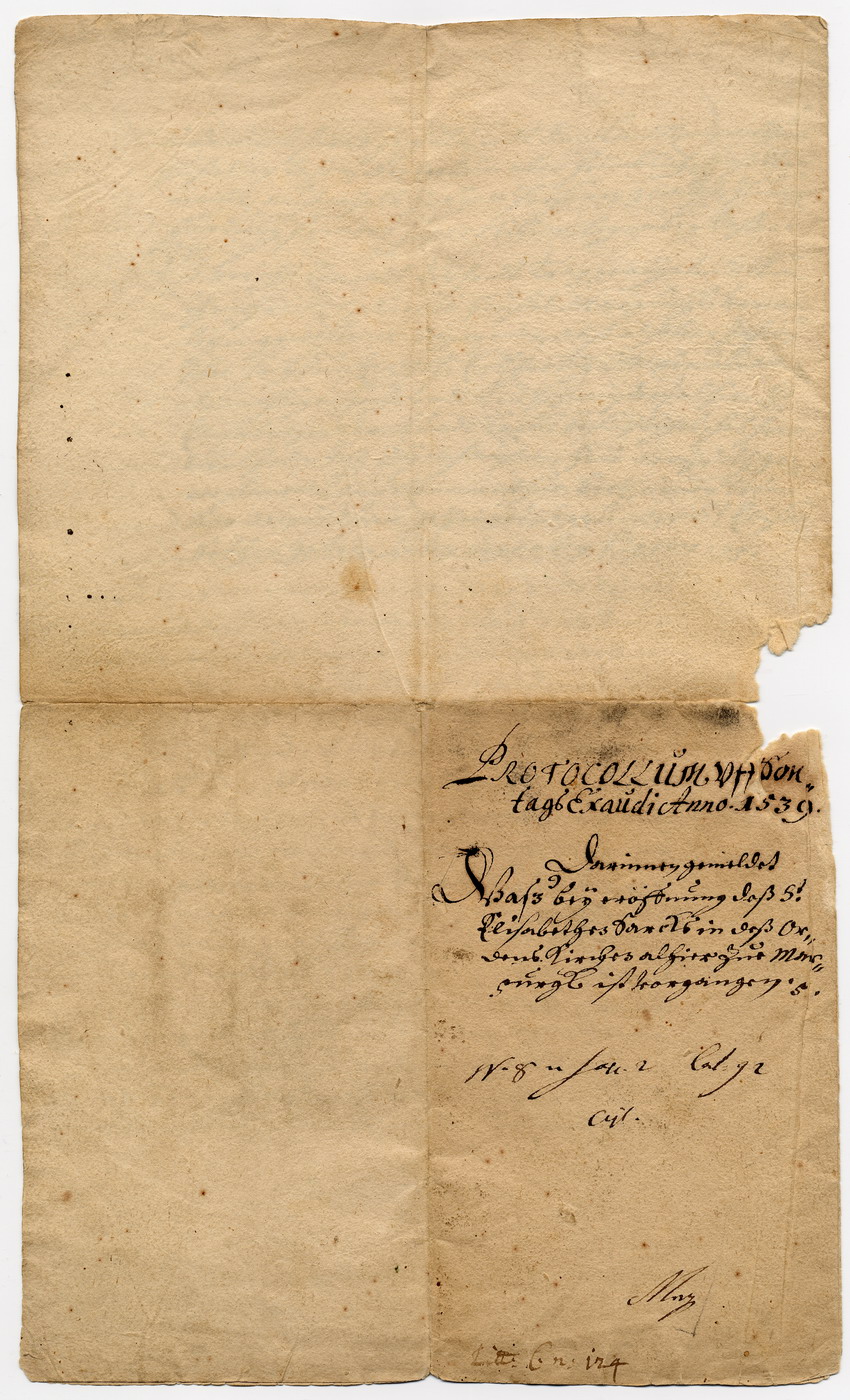 PROTOCOLLUM Vff Son„
tags Exaudi Anno. 1539.
Darinnen gemeldet
Waß bey eröffnung deß St.
Elisabethen Sarcks in deß Or„
dens Kirchen alhier zue Mar„
purgk ist vorgangen.
N. 8
Litt: C n: 124